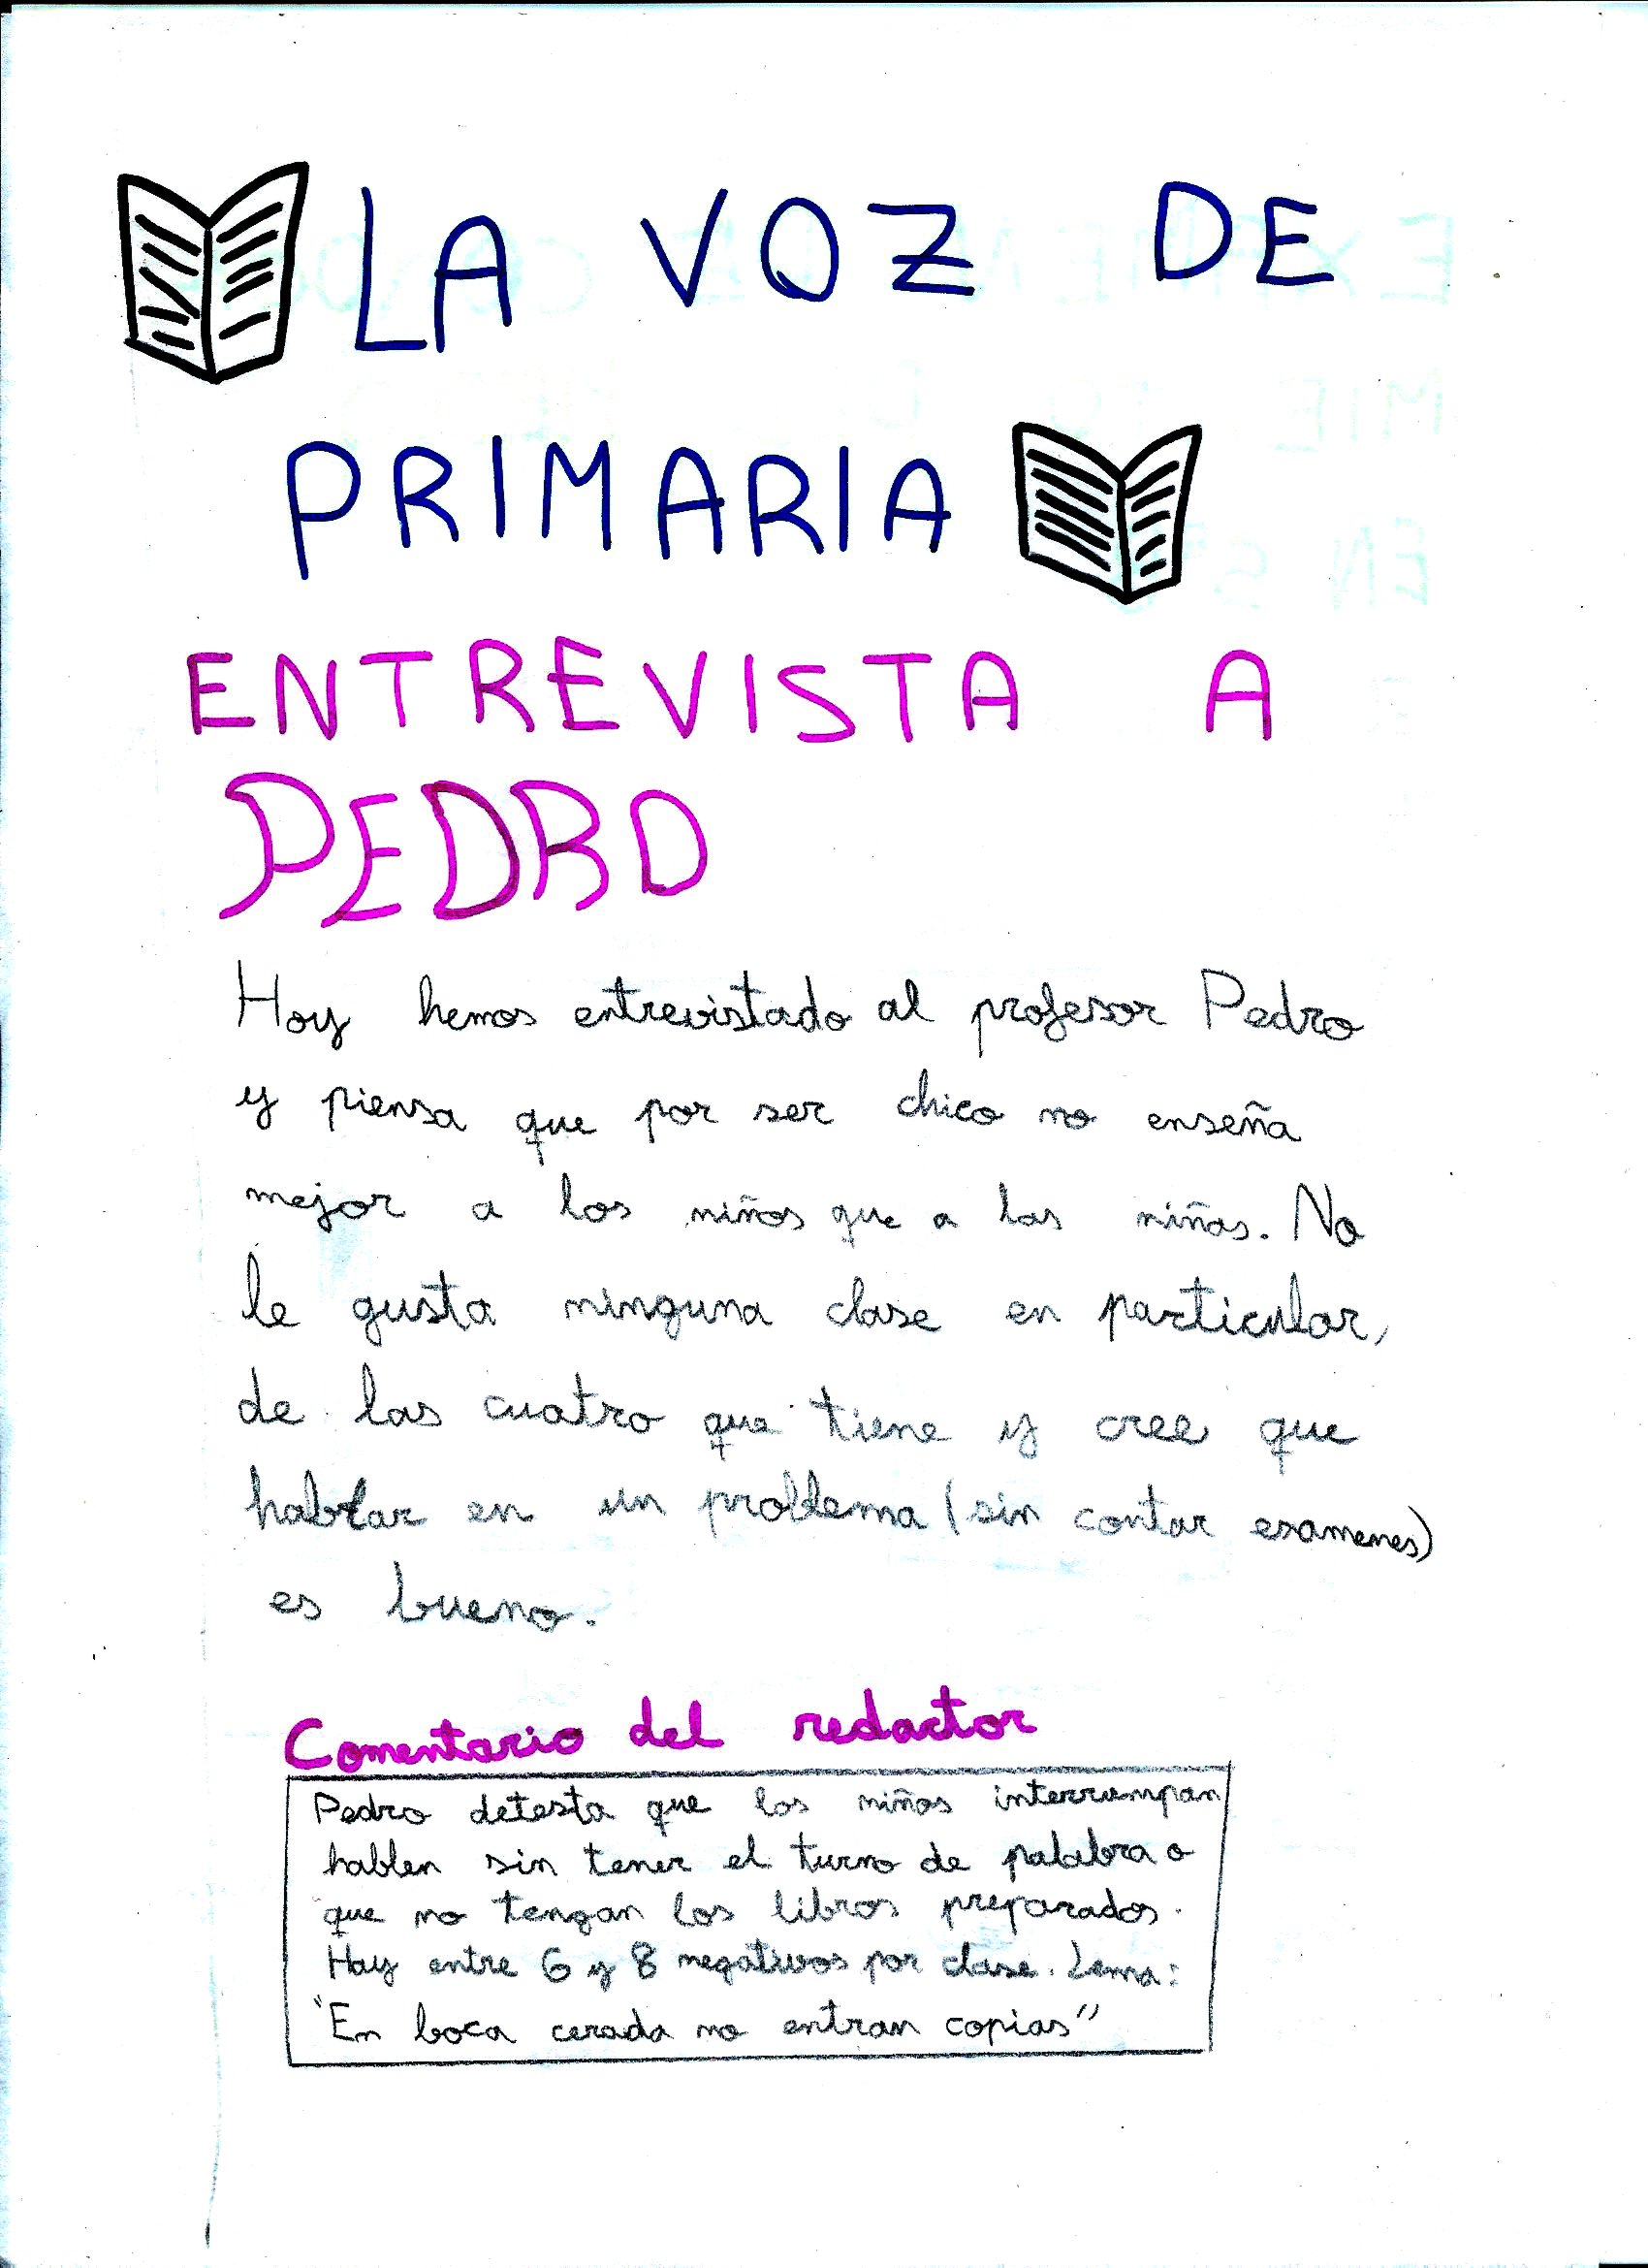 LA VOZ DE
PRIMARIA
ENTREVISTA A
PEDRO
Hoy hemos entrevistado al profesor Pedro
y piensa que por ser chico no enseña
mejor a los niños que a las niñas. No
le gusta ninguna clase en particular,
de las cuatro que tiene y cree que
hablar en un problema (sin contar examenes)
es bueno.
Comentario del redactor
Pedro detesta que los niños interrumpan
hablen sin tener el turno de palabra o
que no tengan los libros preparados.
Hay entre 6 y 8 negativos por clase. Lema:
"En boca cerada no entran copias"